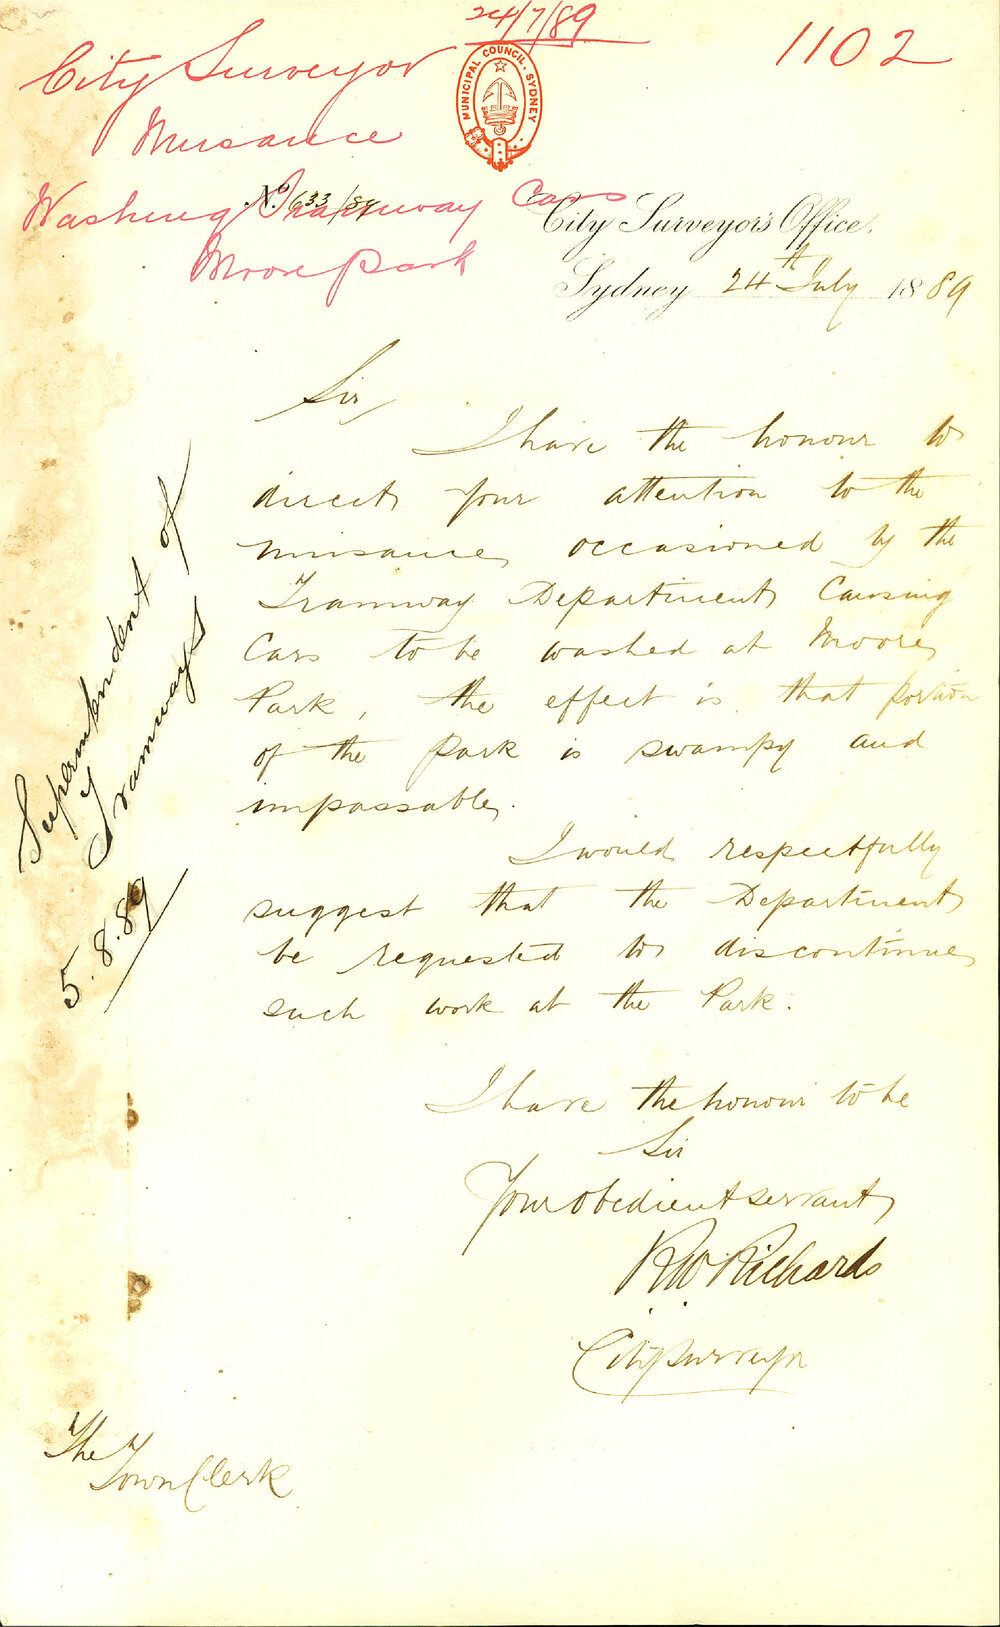 24/7/89
1102
City Surveyor
Nuisance
Washing Tramway Cars
Moore Park
MUNICIPAL COUNCIL · SYDNEY
No. 633/89
City Surveyor's Office,
Sydney 24th July 1889
Sir,
I have the honour to
direct your attention to the
nuisance occasioned by the
Tramway Department causing
Cars to be washed at Moore
Park, the effect is that portion
of the park is swampy and
impassable.
I would respectfully
suggest that the Department
be requested to discontinue
such work at the Park.
I have the honour to be
Sir
Your obedient servant,
RW Richards
City Surveyor
The
Town Clerk
Superintendent of
Tramways
5.8.89